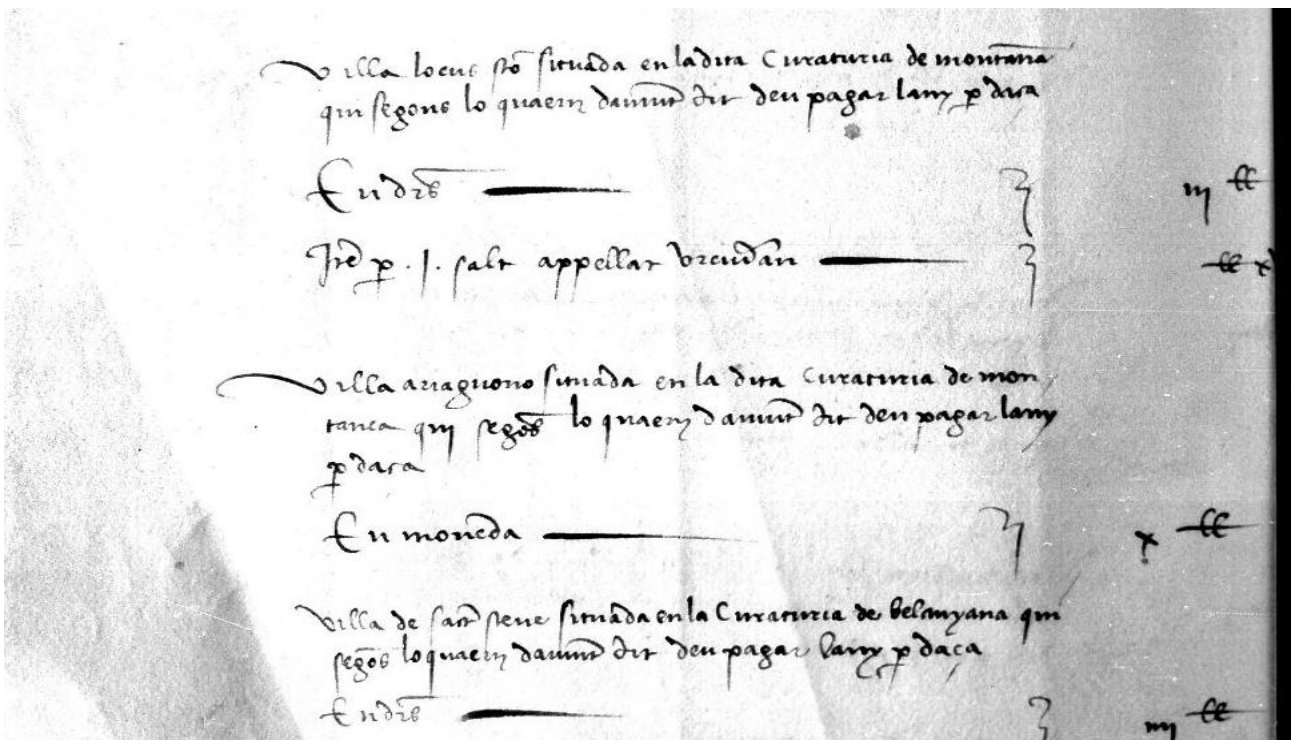 Villa locus sto situada en la dita Curaturia de montana
qui segons lo quaern damunt dit deu pagar lany p daça
En drs iij ll
Ite p .I. salt appellat ll x
Villa ariagnono situada en la dita Curaturia de mon
tanea qui segos lo quaern damunt dit deu pagar lany
p daça
En moneda x ll
Villa de sact steve situada en la Curaturia de belanyana qui
segos lo quaern damunt dit deu pagar lany p daça
En drs iiij ll